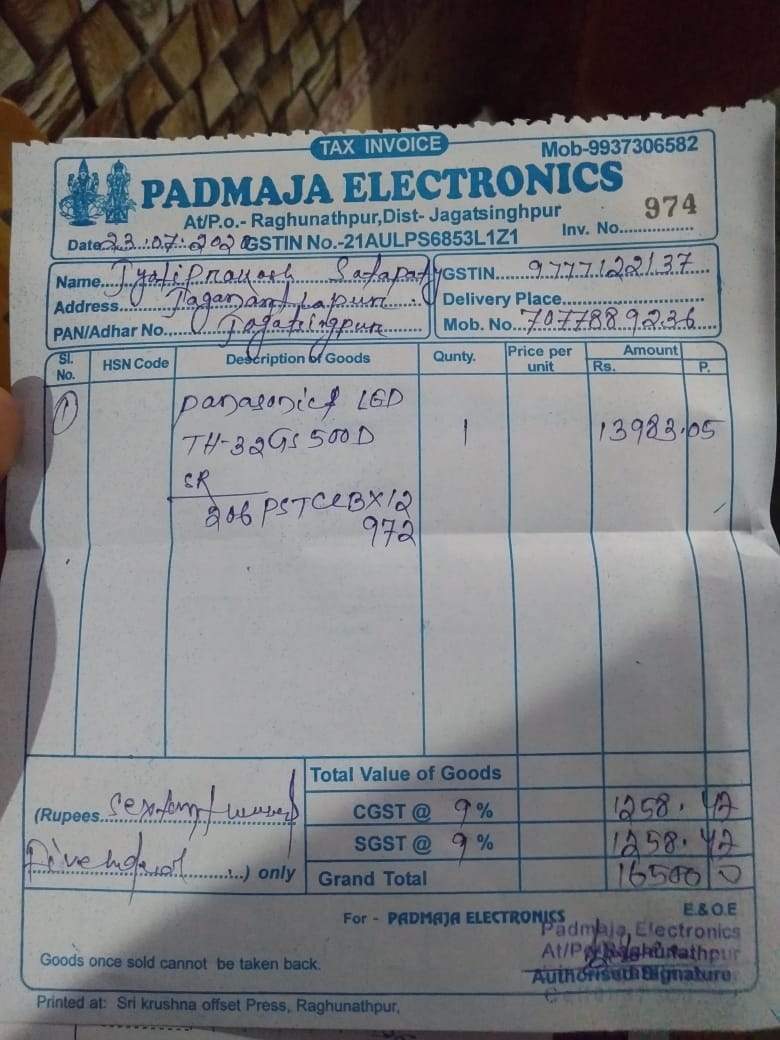 TAX INVOICE
Mob-9937306582
PADMAJA ELECTRONICS
At/P.o.- Raghunathpur,Dist- Jagatsinghpur
Inv. No. 974
Date 23.07.2020 GSTIN No.-21AULPS6853L1Z1
Name
Address
PAN/Adhar No.
GSTIN 9777122137
Delivery Place
Mob. No. 7077889236
Sl. No. HSN Code Description of Goods Qunty. Price per unit Amount Rs. P.
1 Panasonic LED
TH-32GS500D 1 13983.05
SR
972
Total Value of Goods
(Rupees
CGST @ 9 % 1258.42
SGST @ 9 % 1258.42
) only
Grand Total 16500 0
E.& O.E
For - PADMAJA ELECTRONICS
Padmaja Electronics
Goods once sold cannot be taken back.
Authorised Signature
Printed at: Sri krushna offset Press, Raghunathpur,